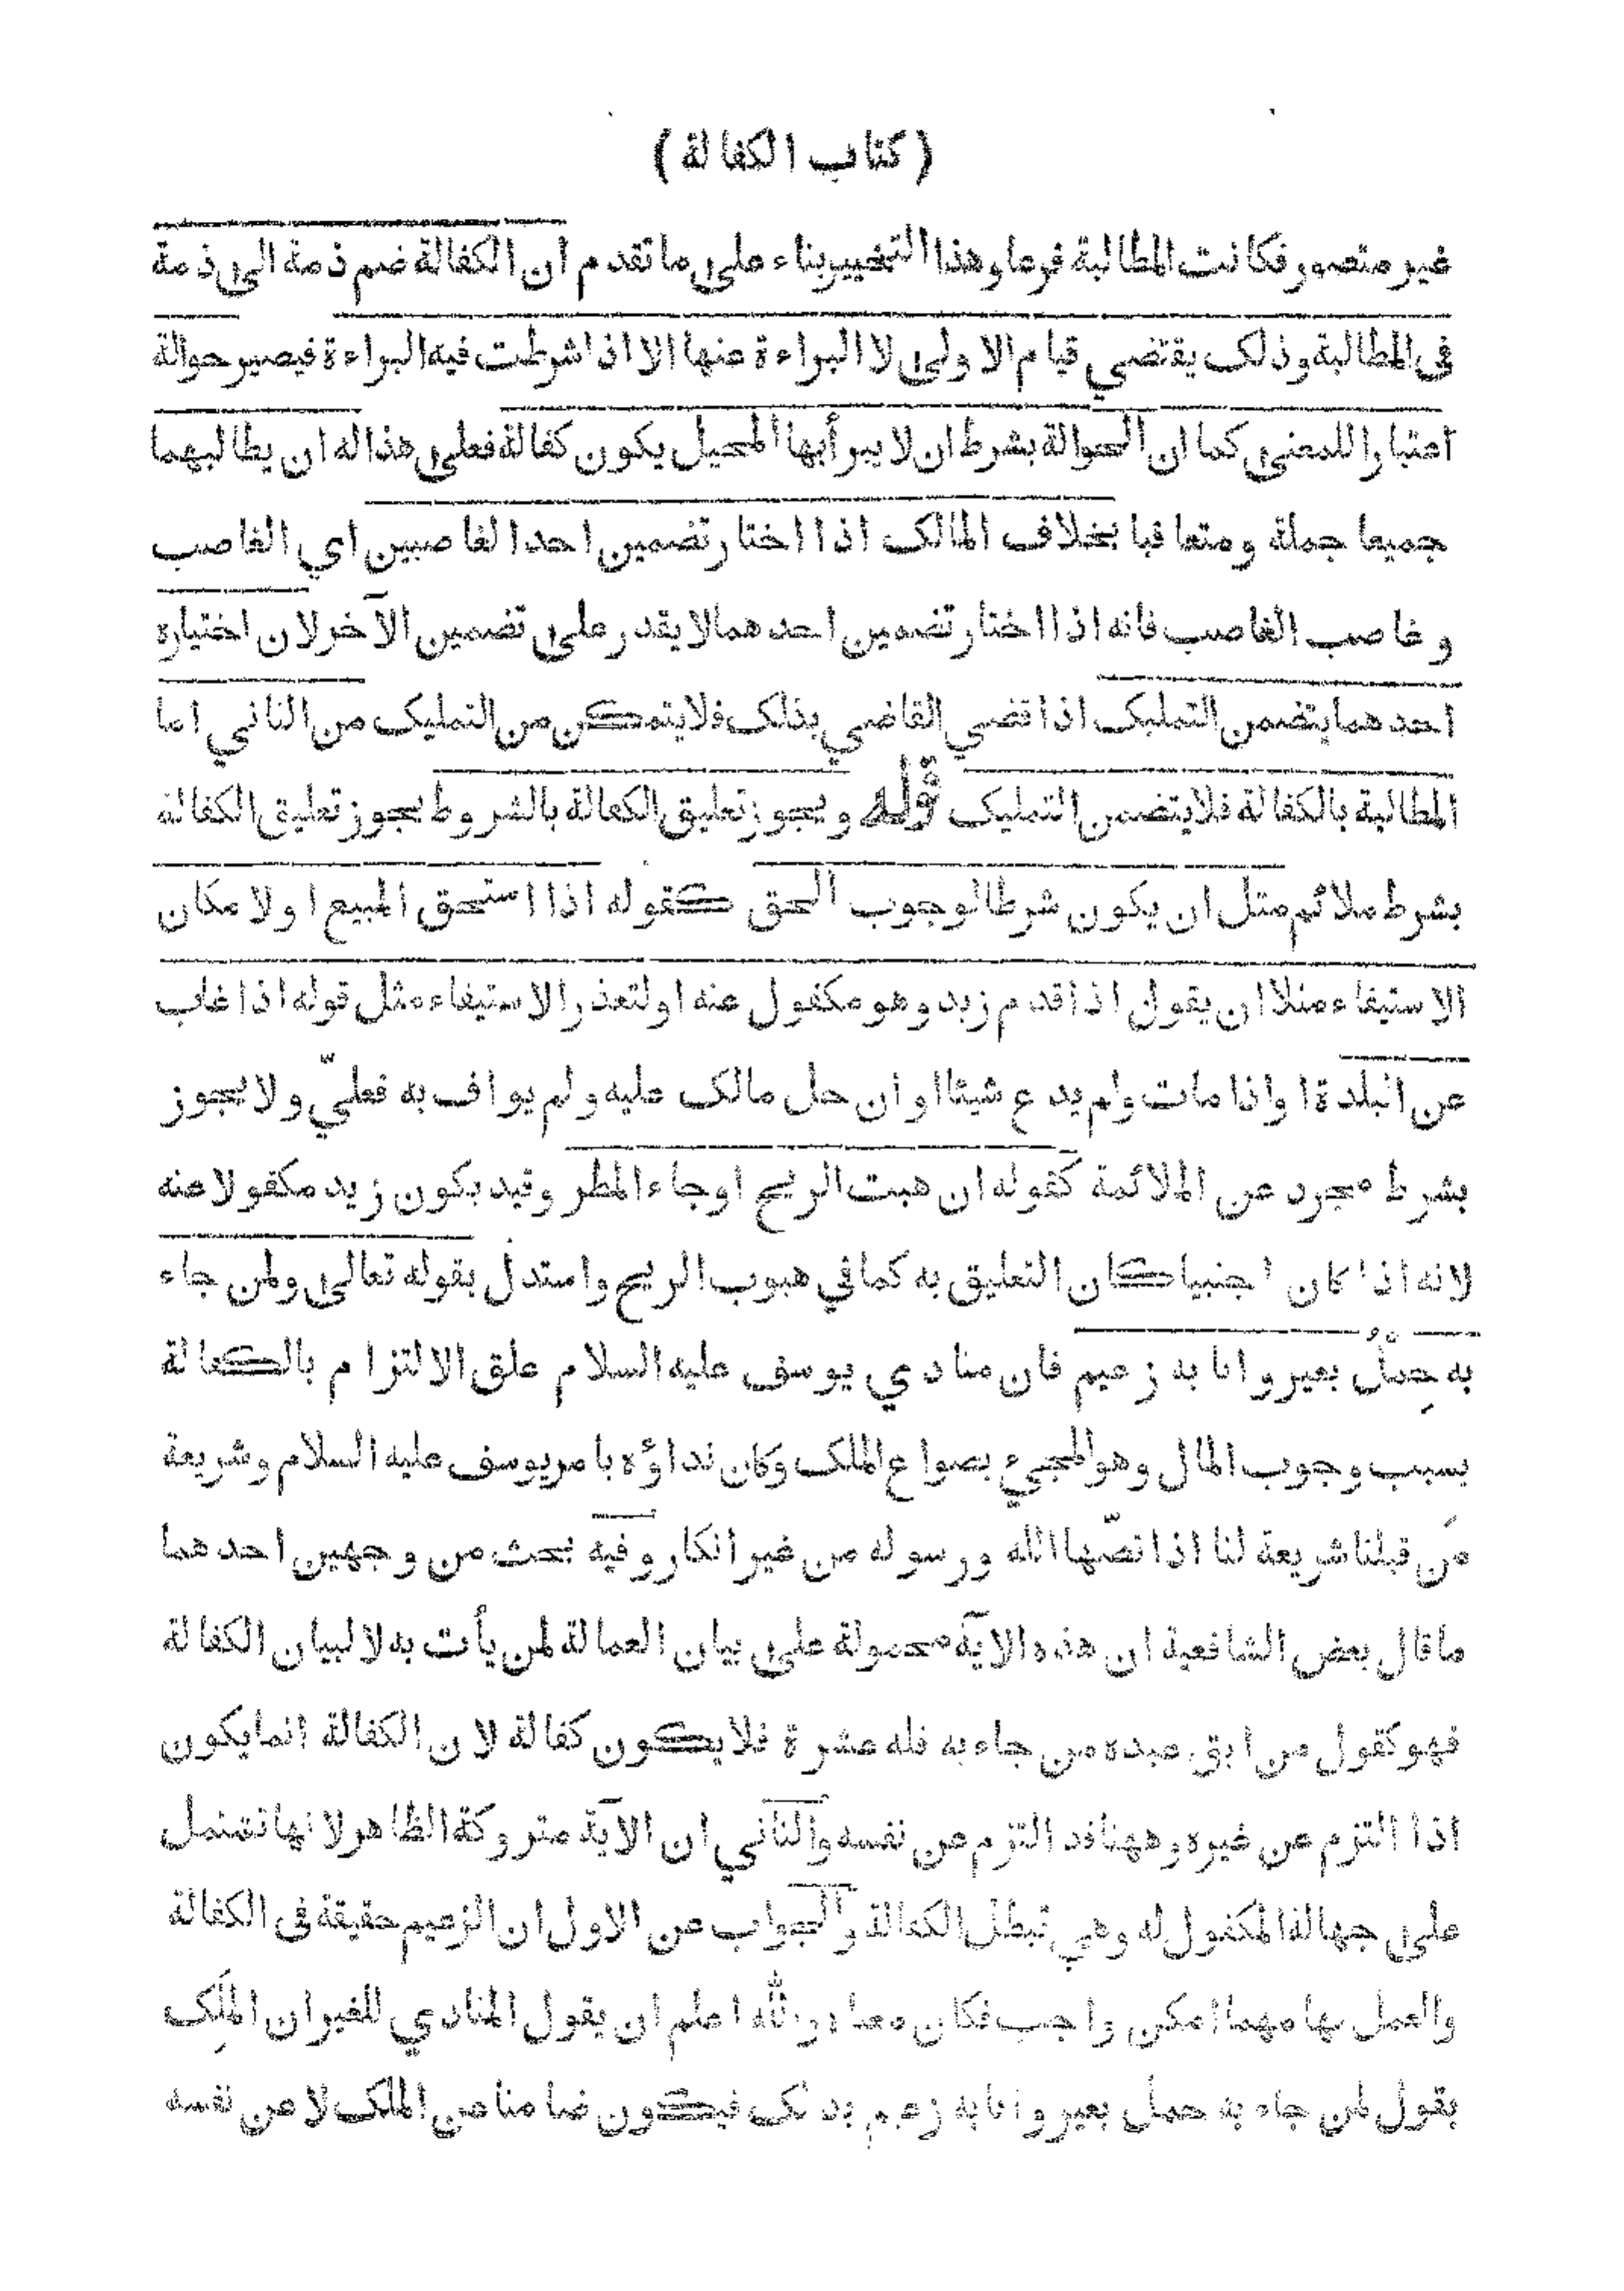 ( كتاب الكفالة )
غير متصور فكانت المطالبة فرعا وهذا التخيير بناء على ما تقدم ان الكفالة ضم ذمة الى ذمة
فى المطالبة وذلك يقتضي قيام الاولى لا البراءة عنها الا اذا شرطت فيه البراءة فيصير حوالة
اعتبارا للمعنى كما ان الحوالة بشرط ان لا يبرأ بها المحيل يكون كفالة فعلى هذا له ان يطالبهما
جميعا جملة ومتعاقبا بخلاف المالك اذا اختار تضمين احد الغاصبين اي الغاصب
وغاصب الغاصب فانه اذا اختار تضمين احدهما لا يقدر على تضمين الآخر لان اختياره
احدهما يتضمن التمليك اذا قضي القاضي بذلك فلا يتمكن من التمليك من الثاني اما
المطالبة بالكفالة فلا يتضمن التمليك قوله ويجوز تعليق الكفالة بالشروط يجوز تعليق الكفالة
بشرط ملائم مثل ان يكون شرطا لوجوب الحق كقوله اذا استحق المبيع او لامكان
الاستيفاء مثلا ان يقول اذا قدم زيد وهو مكفول عنه او لتعذر الاستيفاء مثل قوله اذا غاب
عن البلدة او اذا مات ولم يدع شيئا او ان حل مالك عليه ولم يواف به فعليّ ولا يجوز
بشرط مجرد عن الملائمة كقوله ان هبت الريح او جاء المطر وقيد بكون زيد مكفولا عنه
لانه اذا كان اجنبيا كان التعليق به كما في هبوب الريح واستدل بقوله تعالى ولمن جاء
به حِملُ بعير وانا به زعيم فان منادي يوسف عليه السلام علق الالتزام بالكفالة
بسبب وجوب المال وهو المجيء بصواع الملك وكان نداؤه بامر يوسف عليه السلام وشريعة
مَن قبلنا شريعة لنا اذا نصّها الله ورسوله من غير انكار وفيه بحث من وجهين احدهما
ما قال بعض الشافعية ان هذه الآية محمولة على بيان العمالة لمن يأت به لا لبيان الكفالة
فهو كقول من ابق عبده من جاء به فله عشرة فلا يكون كفالة لان الكفالة انما يكون
اذا التزم عن غيره وههنا قد التزم عن نفسه والثاني ان الآية متروكة الظاهر لانها تشتمل
على جهالة المكفول له وهي تبطل الكفالة والجواب عن الاول ان الزعيم حقيقة فى الكفالة
والعمل بها مهما امكن واجب فكان معناه والله اعلم ان يقول المنادي للغير ان الملِك
يقول لمن جاء به حمل بعير وانا به زعيم بذلك فيكون ضامنا عن الملك لا عن نفسه